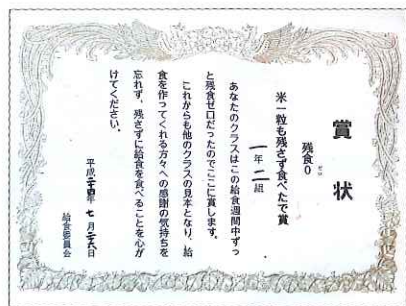 賞状
残食0
ゼロ
米一粒も残さず食べたで賞
一年二組
あなたのクラスはこの給食週間中ずっ
と残食ゼロだったのでここに賞します。
これからも他のクラスの見本となり、給
食を作ってくれる方々への感謝の気持ちを
忘れず、残さずに給食を食べることを心が
けてください。
平成二十四年七月二十九日
給食委員会